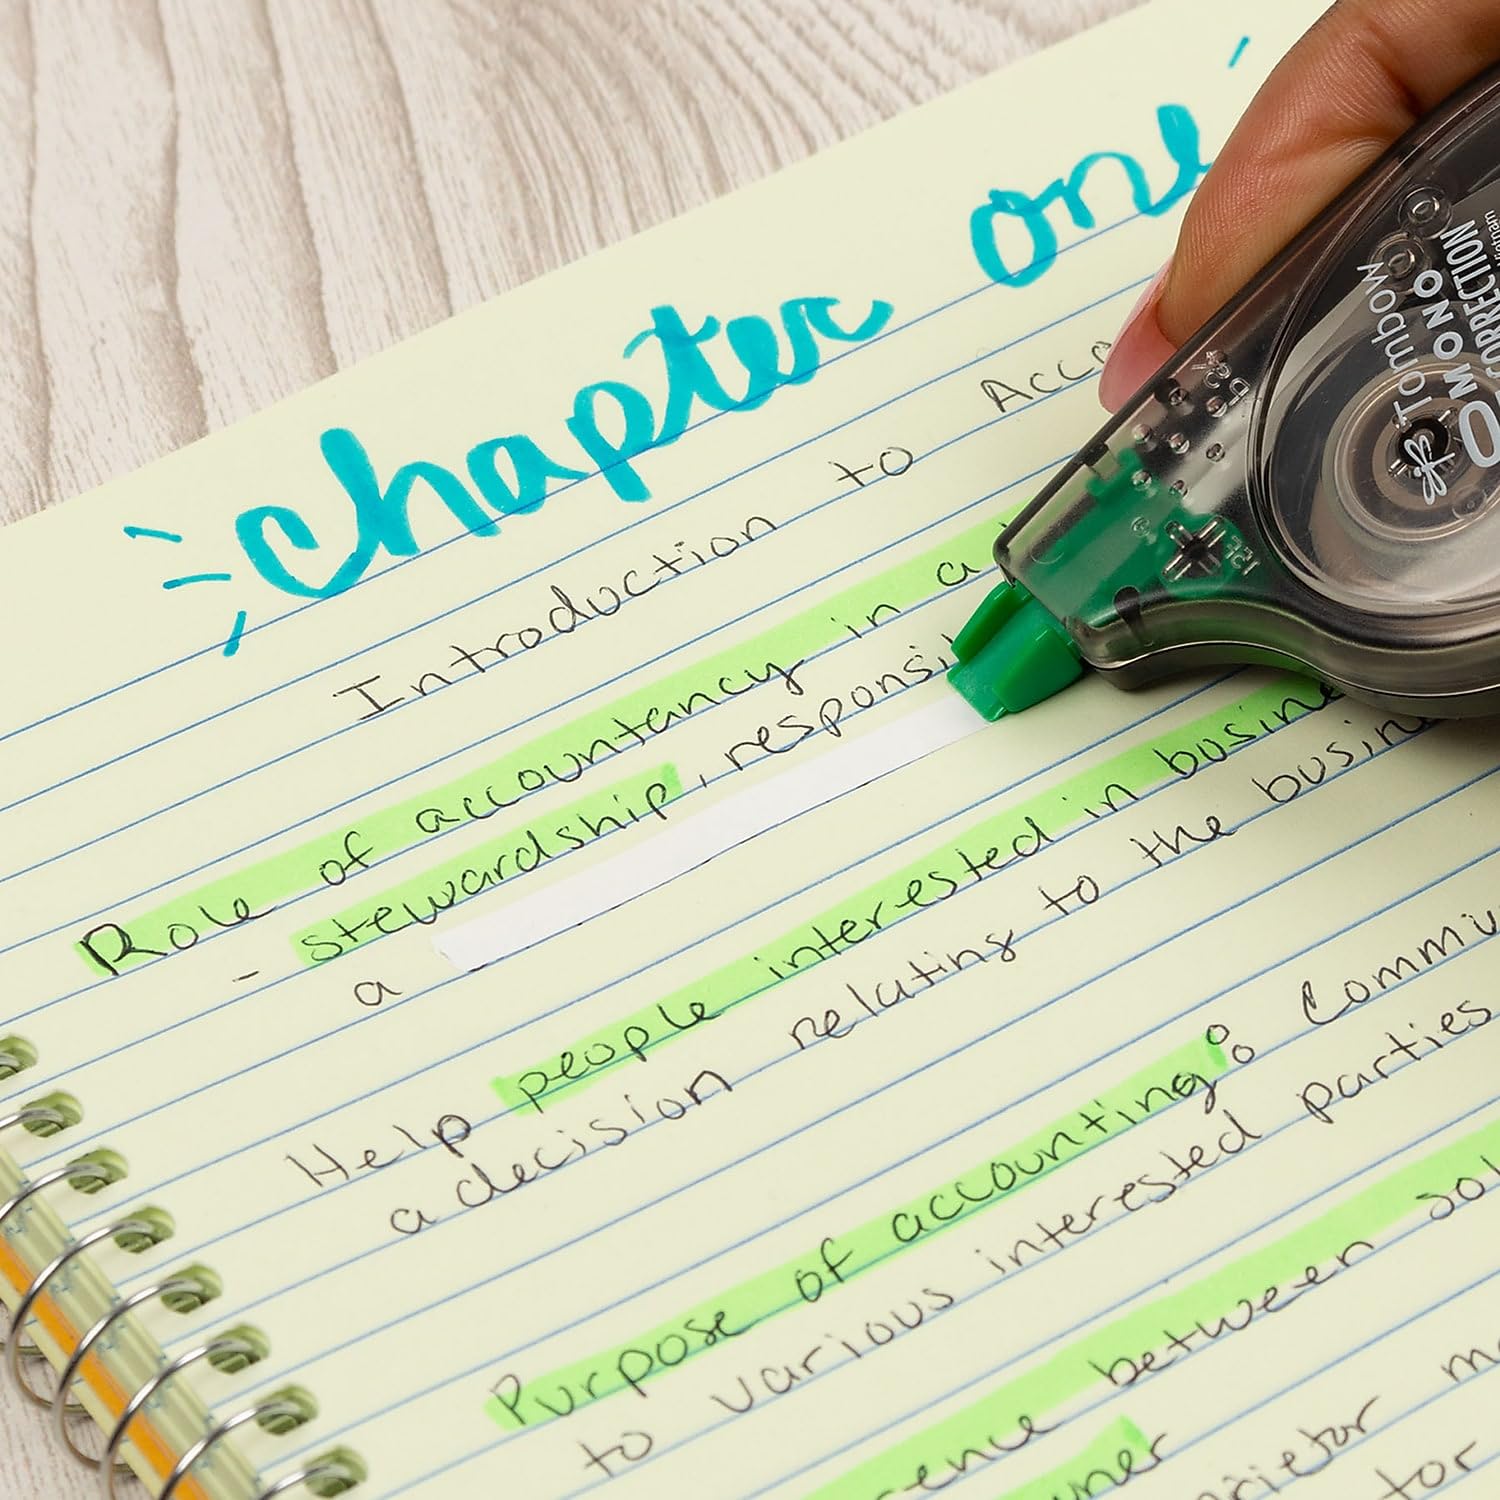 chapter one
Introduction to Acco
Role of accountancy in a
- stewardship, responsi
a
Help people interested in busine
a decision relating to the busine
Purpose of accounting: Commu
to various interested parties
ence between sol
wner
rietor
tor
Tombow
MONO
CORRECTION